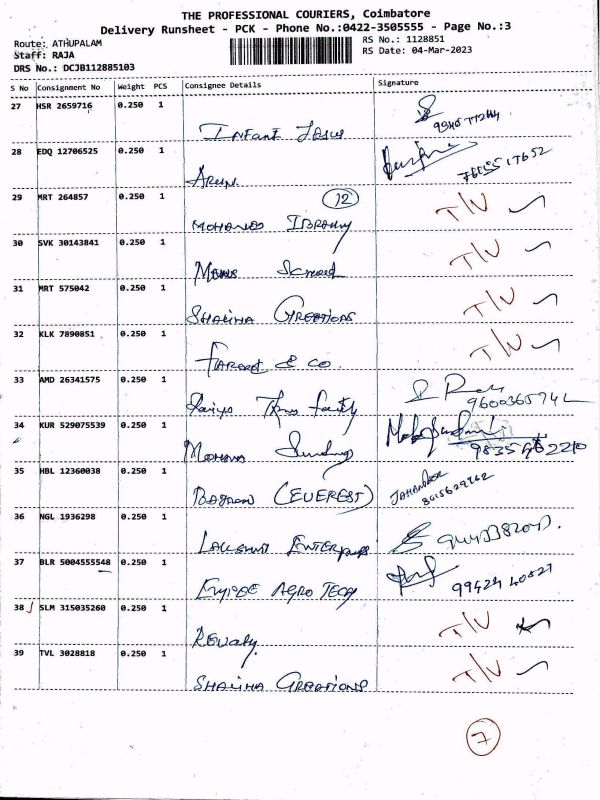 THE PROFESSIONAL COURIERS, Coimbatore
Delivery Runsheet - PCK - Phone No.:0422-3505555 - Page No.:3
Route: ATHUPALAM RS No.: 1128851
Staff: RAJA RS Date: 04-Mar-2023
DRS No.: DCJB112885103
S No Consignment No Weight PCS Consignee Details Signature
27 HSR 2659716 0.250 1
INFANT JESUS
28 EDQ 12706525 0.250 1
ARUN.
29 MRT 264857 0.250 1 12 T/V
MOHAMED IBRAHIM
30 SVK 30143841 0.250 1 T/V
31 MRT 575042 0.250 1 T/V
SHALIHA CREATIONS
32 KLK 7890851 0.250 1 T/V
& CO.
33 AMD 26341575 0.250 1
9600365742
34 KUR 529075539 0.250 1
MOHANA
35 HBL 12360038 0.250 1
(EVEREST)
36 NGL 1936298 0.250 1
37 BLR 5004555548 0.250 1
99424 40827
AGRO TECH
38 SLM 315035260 0.250 1 T/V
REVATHY.
39 TVL 3028818 0.250 1 T/V
SHALIHA CREATIONS
7